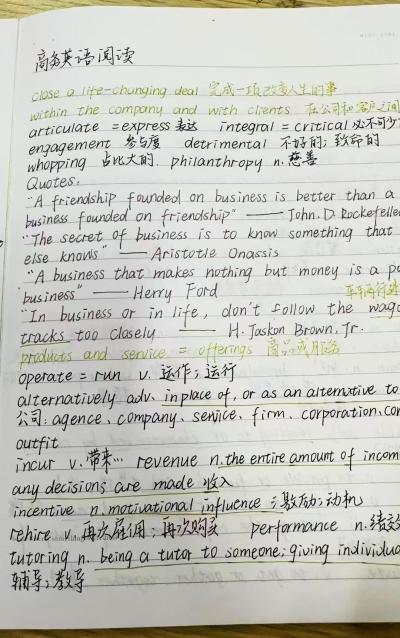 高务英语阅读
close a life-changing deal 完成一项改变人生的事
within the company and with clients 在公司和客户之间
articulate = express 表达 integral = critical 必不可少
engagement 参与度 detrimental 不好的；致命的
whopping 占比大的. philanthropy n. 慈善
Quotes.
"A friendship founded on business is better than a
business founded on friendship" —— John. D. Rockefelle
"The secret of business is to know something that
else knows" —— Aristotle Onassis
"A business that makes nothing but money is a po
business" —— Herry Ford
"In business or in life, don't follow the wago
tracks too closely —— H. Jaskon Brown, Jr.
products and service = offerings 商品或服务
operate = run v. 运作；运行
alternatively adv. in place of, or as an alternative to
公司: agence、company、service、firm、corporation、cor
outfit
incur v. 带来… revenue n. the entire amount of incom
any decisions are made 收入
incentive n. motivational influence；激励；动机
rehire v. 再次雇用；再次购买 performance n. 绩效
tutoring n. being a tutor to someone; giving individua
辅导；教导